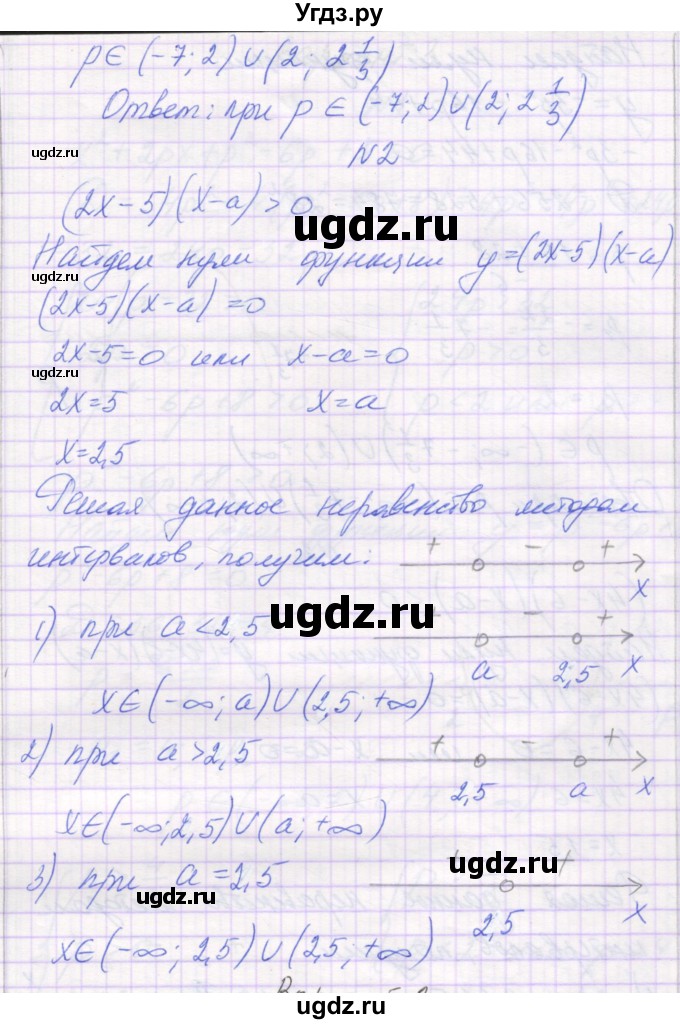 Угдз.ру
p∈(-7;2)∪(2; 2 1/3)
Ответ: при p∈(-7;2)∪(2; 2 1/3)
ugdz.ru
N2
(2x-5)(x-a)>0
ugdz.ru
Найдем нули функции y=(2x-5)(x-a)
ugdz.ru
(2x-5)(x-a)=0
2x-5=0 или x-a=0
ugdz.ru
2x=5 x=a
x=2,5
Решая данное неравенство методом
ugdz.ru
интервалов, получим: + - + x
1) при a<2,5 + - +
ugdz.ru
a 2,5 x
x∈(-∞; a)∪(2,5; +∞)
2) при a>2,5 + - +
ugdz.ru
2,5 a x
x∈(-∞; 2,5)∪(a; +∞)
3) при a=2,5 + +
ugdz.ru
ugdz.ru
2,5 x
x∈(-∞; 2,5)∪(2,5; +∞)
ugdz.ru